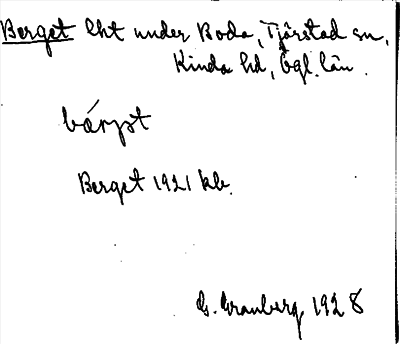 Berget lht under Boda, Tjärstad sn,
Kinda hd, Ögl. län.
Berget 1921 kb.
G. Granberg 1928